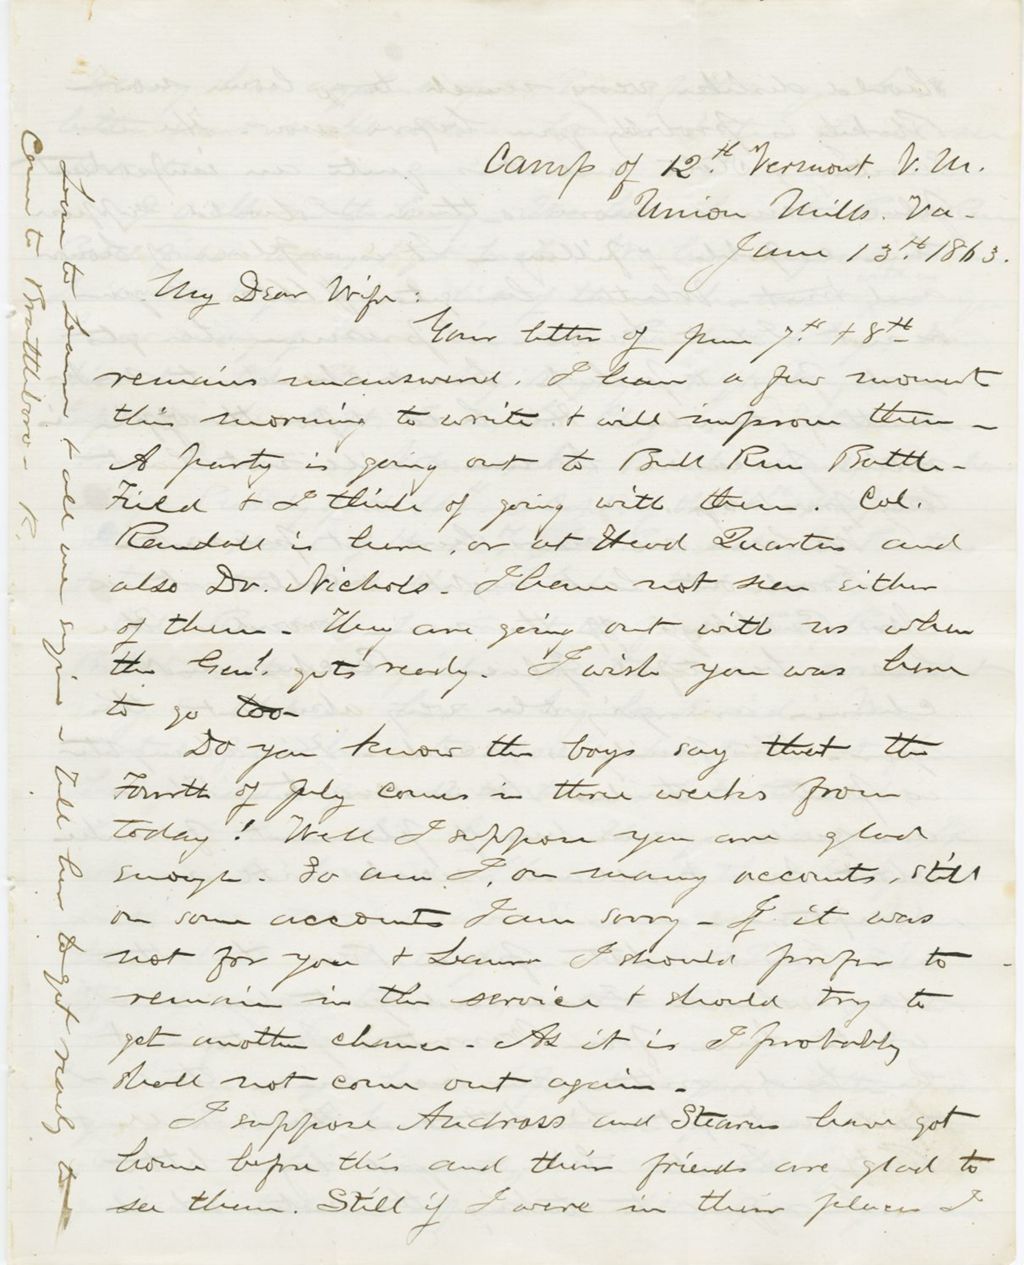 Camp of 12th. Vermont. V. M.
Union Mills. Va-
June 13th. 1863.
My Dear Wife:
Your letter of June 7th. + 8th
remains unanswered. I have a few moment
this morning to write + will improve them -
A party is going out to Bull Run Battle-
Field + I think of going with them. Col.
Randall is here, or at Head Quarters and
also Dr. Nichols. I have not seen either
of them - They are going out with us when
the Genl. gets ready. I wish you was here
to go too-
Do you know the boys say that the
Fourth of July comes in three weeks from
today! Well I suppose you are glad
enough. So am I, on many accounts, still
on some accounts I am sorry - If it was
not for you + Laura I should prefer to -
remain in the service + should try to
get another chance - As it is I probably
shall not come out again -
I suppose Andross and Stearns have got
home before this and their friends are glad to
see them. Still if I were in their places I
Love to Laura + all our - Tell her to get ready to
Come to Brattleboro - R.